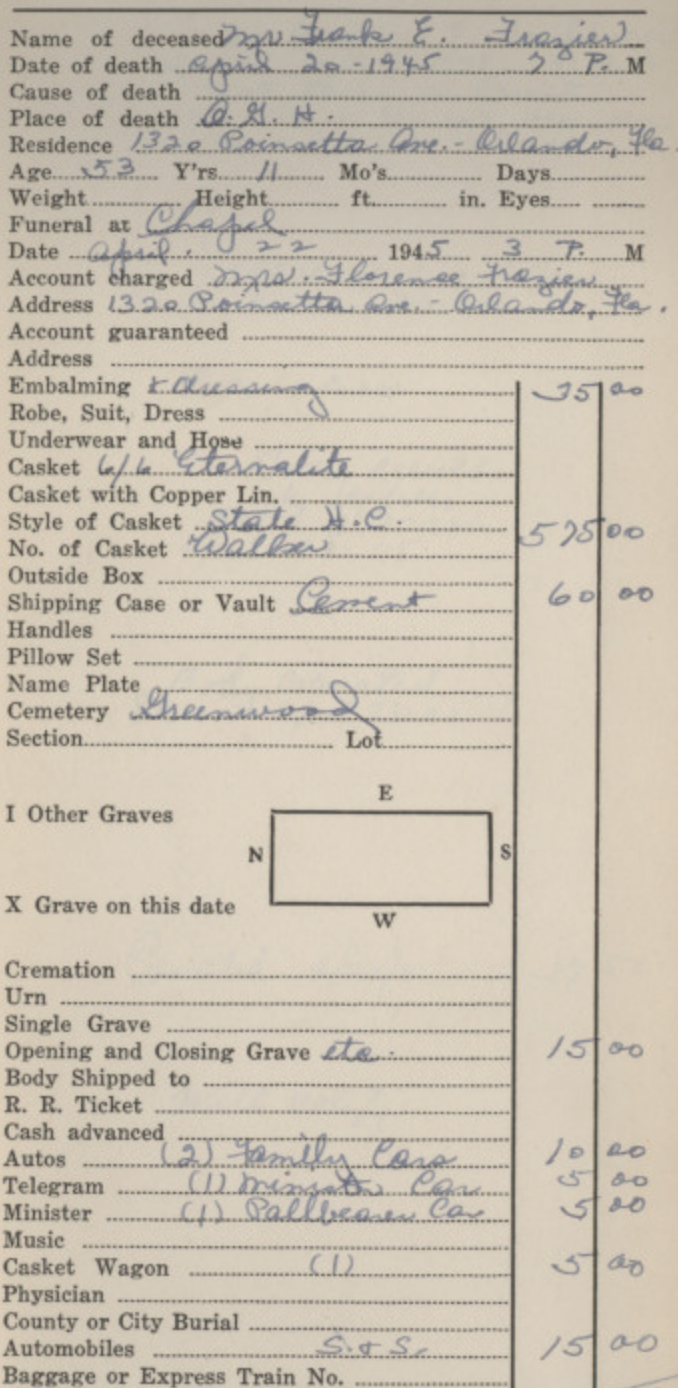 Name of deceased Mr. Frank E. Frazier
Date of death April 20-1945 7 P. M
Cause of death
Place of death O. G. H.
Residence 1320 Poinsetta Ave. - Orlando, Fla.
Age 53 Y'rs 11 Mo's Days
Weight Height ft. in. Eyes
Funeral at Chapel
Date April. 22 1945 3 P. M
Account charged Mrs. Florence Frazier
Address 1320 Poinsetta Ave. - Orlando, Fla.
Account guaranteed
Address
Embalming & dressing 35 00
Robe, Suit, Dress
Underwear and Hose
Casket 6/6 Eternalite
Casket with Copper Lin.
Style of Casket State H.C.
No. of Casket 575 00
Outside Box
Shipping Case or Vault Cement 60 00
Handles
Pillow Set
Name Plate
Cemetery Greenwood
Section Lot
E
I Other Graves
N S
X Grave on this date
W
Cremation
Urn
Single Grave
Opening and Closing Grave etc. 15 00
Body Shipped to
R. R. Ticket
Cash advanced
Autos (2) Family Cars 10 00
Telegram (1) Minister Car 5 00
Minister (1) Pallbearer Car 5 00
Music
Casket Wagon (1) 5 00
Physician
County or City Burial
Automobiles S. & S. 15 00
Baggage or Express Train No.